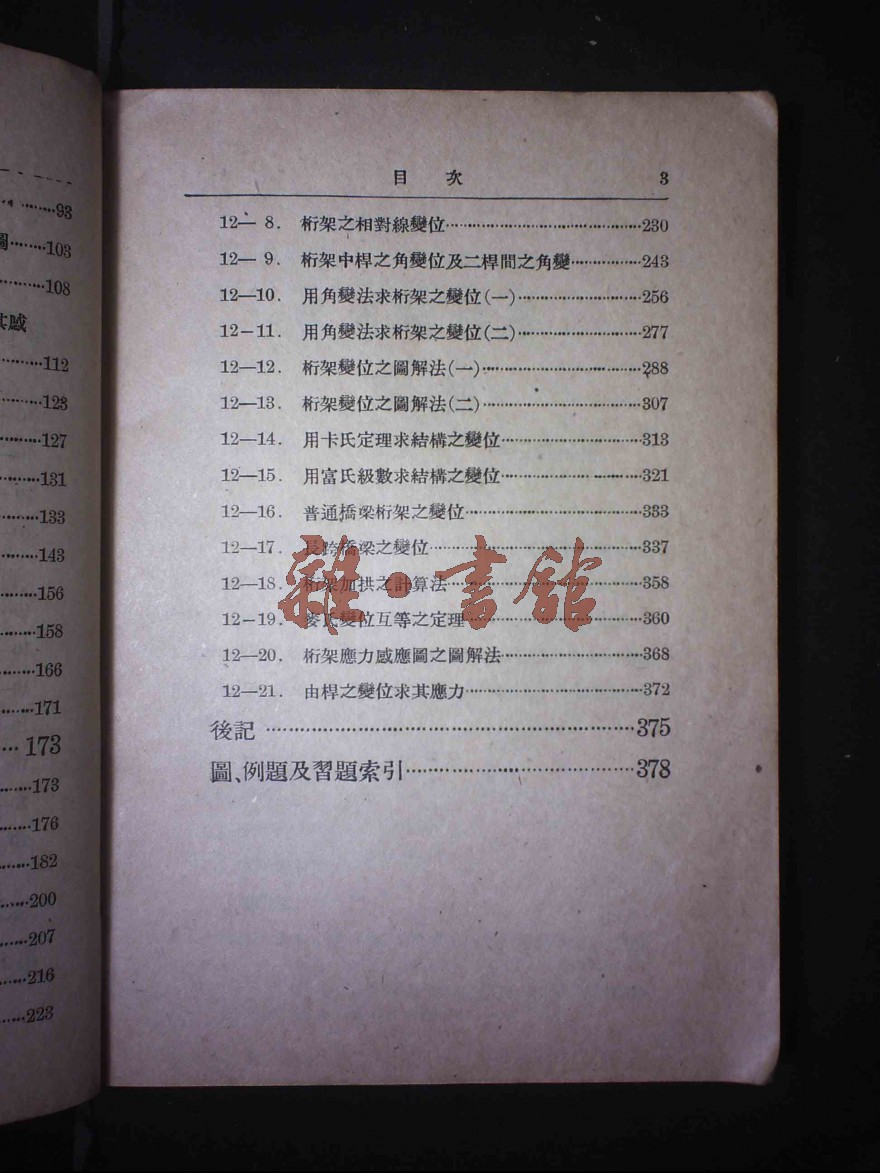 93
103
108
其感
112
123
127
131
133
143
156
158
166
171
173
173
176
182
200
207
216
223
目 次 3
12— 8. 桁架之相對線變位 230
12— 9. 桁架中桿之角變位及二桿間之角變 243
12—10. 用角變法求桁架之變位(一) 256
12—11. 用角變法求桁架之變位(二) 277
12—12. 桁架變位之圖解法(一) 288
12—13. 桁架變位之圖解法(二) 307
12—14. 用卡氏定理求結構之變位 313
12—15. 用富氏級數求結構之變位 321
12—16. 普通橋梁桁架之變位 333
12—17. 長跨橋梁之變位 337
12—18. 桁架加拱之計算法 358
12—19. 麥氏變位互等之定理 360
12—20. 桁架應力感應圖之圖解法 368
12—21. 由桿之變位求其應力 372
後記 375
圖、例題及習題索引 378
雜·書館